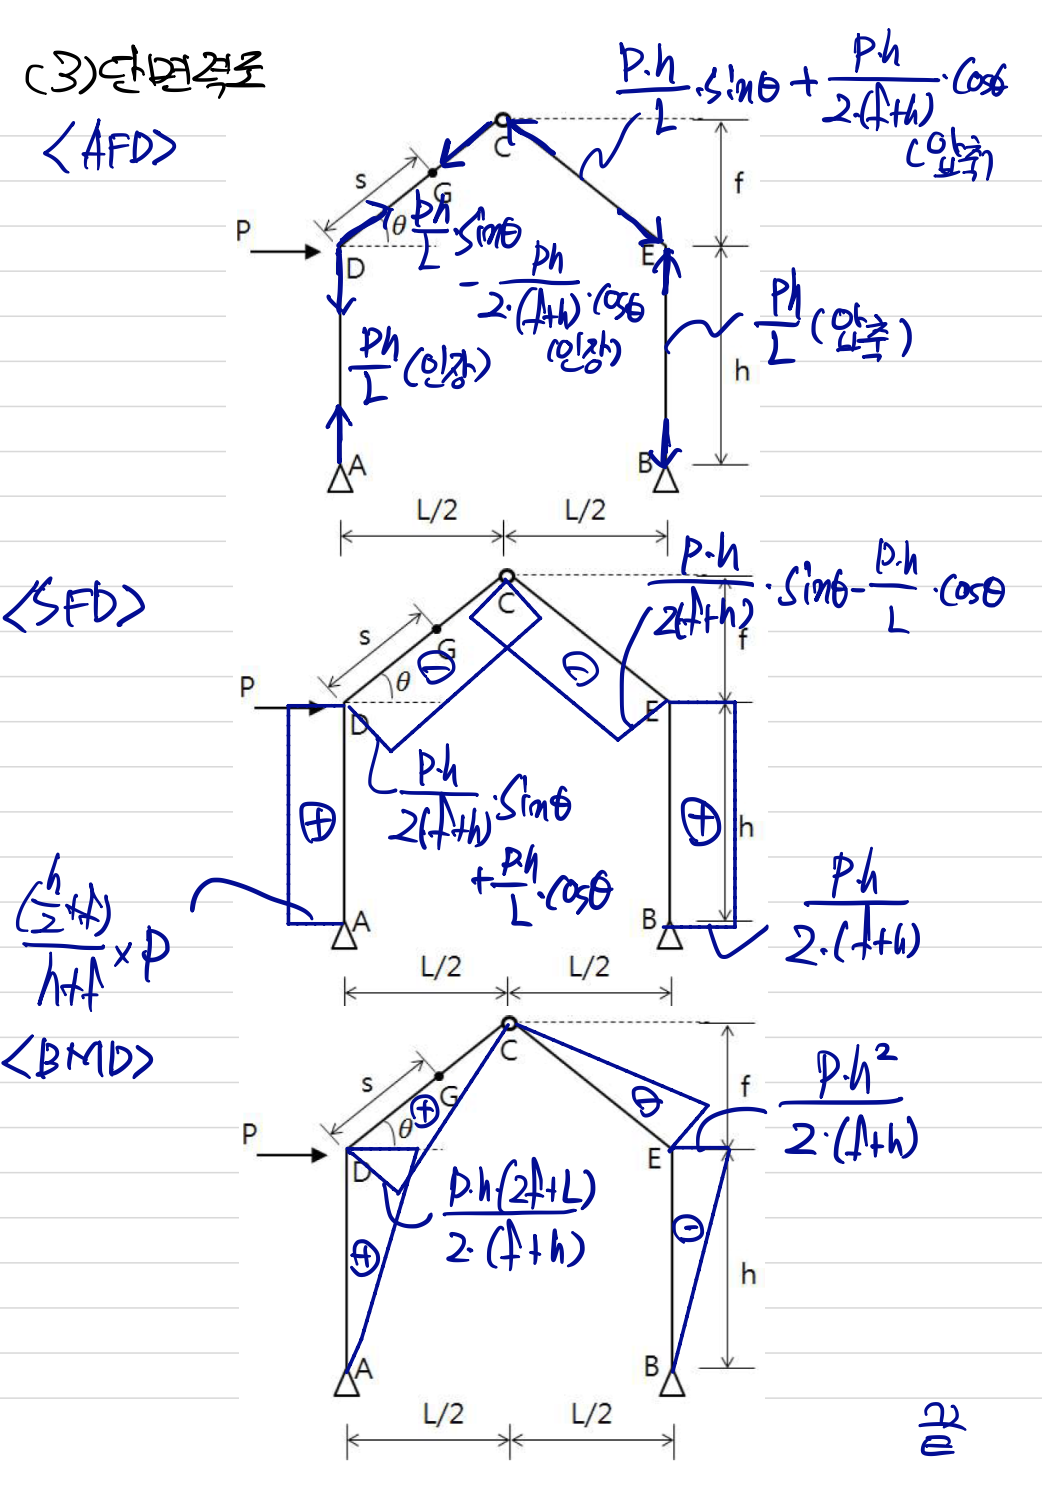 (3) 단면력도
<AFD>
P·h/L ·sinθ + P·h/2·(f+h) ·cosθ
(압축)
C
s
G
f
P
θ
D
E
Ph/L ·sinθ
- Ph/2·(f+h) ·cosθ
(인장)
Ph/L (인장)
Ph/L (압축)
h
A
B
L/2
L/2
<SFD>
P·h/2(f+h) ·sinθ - P·h/L ·cosθ
C
s
G
f
P
θ
D
E
⊖
⊖
P·h/2(f+h) ·sinθ
+ P·h/L ·cosθ
⊕
⊕
h
(h/2+f)/h+f × P
A
B
P·h/2·(f+h)
L/2
L/2
<BMD>
C
s
G
f
P
θ
D
E
⊕
⊖
P·h²/2·(f+h)
P·h·(2f+L)/2·(f+h)
⊕
⊖
h
A
B
L/2
L/2
끝